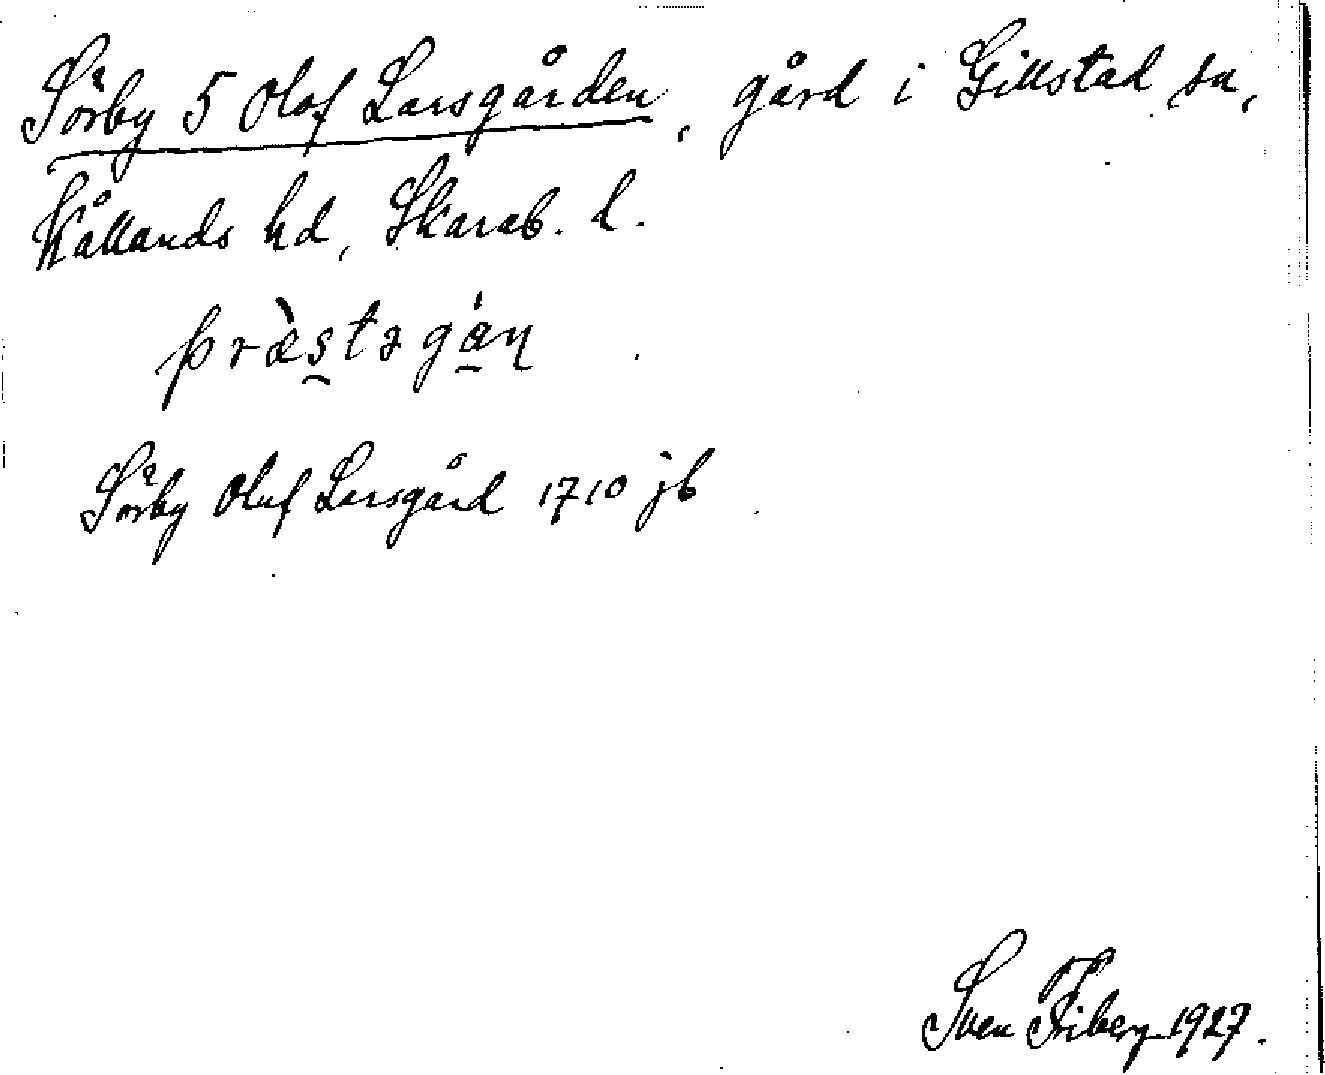 Sörby 5 Olof Larsgården, gård i Gillstad sn,
Kållands hd, Skarab. l.
præ̀stəgá̱ɳ
Sörby Oluf Larsgård 1710 jb
Sven Friberg 1927.